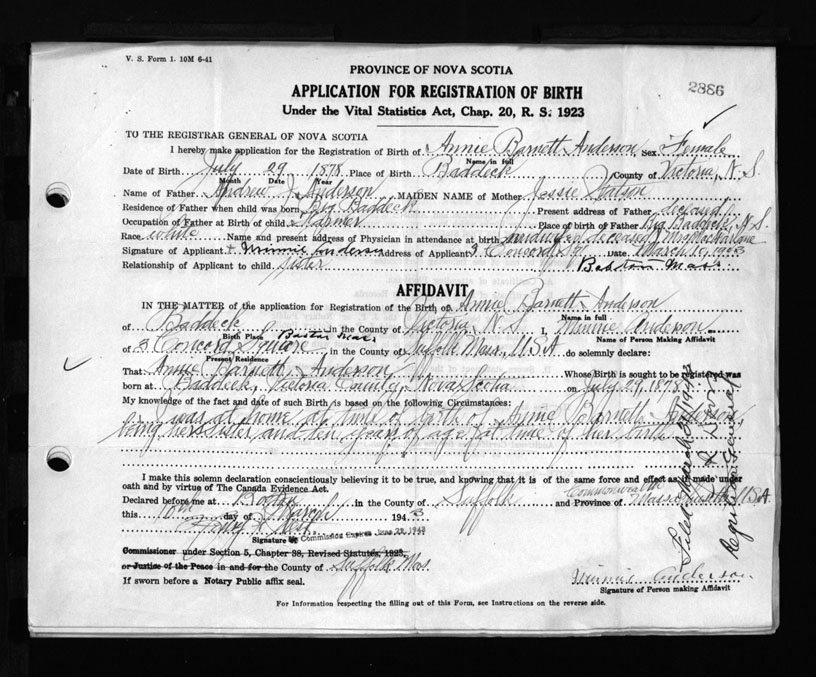 V. S. Form 1. 10M 6-41
PROVINCE OF NOVA SCOTIA
2886
APPLICATION FOR REGISTRATION OF BIRTH
Under the Vital Statistics Act, Chap. 20, R. S. 1923
TO THE REGISTRAR GENERAL OF NOVA SCOTIA
I hereby make application for the Registration of Birth of Annie Barnett Anderson Sex Female
Name in full
Date of Birth July 29 1878 Place of Birth Baddeck County of Victoria, N.S.
Month Date Year
Name of Father Andrew J. Anderson MAIDEN NAME of Mother Jessie Watson
Residence of Father when child was born Big Baddeck Present address of Father deceased
Occupation of Father at Birth of child Farmer Place of Birth of Father Big Baddeck, N S
Race white Name and present address of Physician in attendance at birth deceased Mrs MacFarlane
Signature of Applicant Minnie Anderson Address of Applicant 3 Concord Sq Date March 10, 1943
Relationship of Applicant to child Sister Boston Mass
AFFIDAVIT
IN THE MATTER of the application for Registration of the Birth of Annie Barnett Anderson
Name in full
of Baddeck in the County of Victoria, N S I, Minnie Anderson
Birth Place Boston Mass Name of Person Making Affidavit
of 3 Concord Square in the County of Suffolk Mass, USA do solemnly declare:
Present Residence
That Annie Barnett Anderson Whose Birth is sought to be registered was
born at Baddeck, Victoria County, Nova Scotia on July 29, 1878
My knowledge of the fact and date of such Birth is based on the following Circumstances:
I was at home at time of birth of Annie Barnett Anderson
being her sister and ten years of age at time of her birth
I make this solemn declaration conscientiously believing it to be true, and knowing that it is of the same force and effect as if made under
oath and by virtue of The Canada Evidence Act.
Declared before me at Boston in the County of Suffolk and Province of Commonwealth Massachusetts USA
this 10th day of March 1943
Signature Commission Expires June 1948
Commissioner under Section 5, Chapter 38, Revised Statutes, 1923,
or Justice of the Peace in and for the County of Suffolk Mass
If sworn before a Notary Public affix seal.
Minnie Anderson
Signature of Person making Affidavit
For Information respecting the filling out of this Form, see Instructions on the reverse side.
Filed March
Registrar General